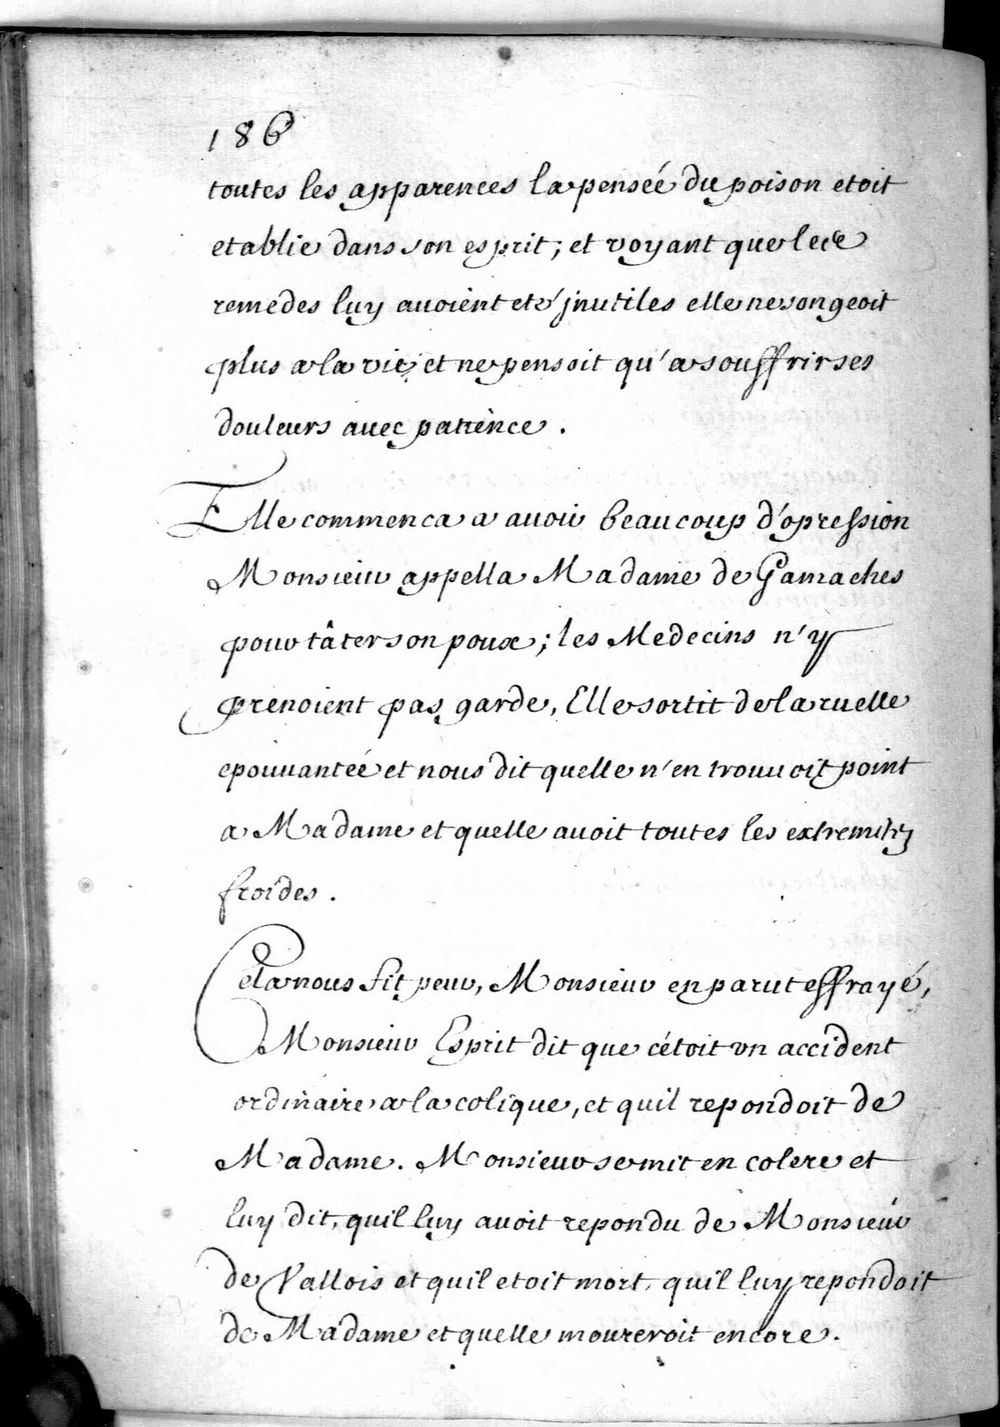 186
toutes les apparences la pensée du poison etoit
etablie dans son esprit; et voyant que lece
remedes luy avoient eté jnutiles elle ne songeoit
plus a la vie, et ne pensoit qu'a souffrir ses
douleurs avec patience.
Elle commenca a avoir beaucoup d'opression
Monsieur appella Madame de Gamaches
pour tâter son poux; les Medecins n'y
prenoient pas garde, Elle sortit de la ruelle
epouvantée et nous dit quelle n'en trouvoit point
a Madame et quelle avoit toutes les extremitez
froides.
Cela nous fit peur, Monsieur en parut effrayé,
Monsieur Esprit dit que cétoit vn accident
ordinaire a la colique, et quil repondoit de
Madame. Monsieur se mit en colere et
luy dit, quil luy avoit repondu de Monsieur
de Vallois et quil etoit mort, quil luy repondoit
de Madame et quelle moureroit encore.